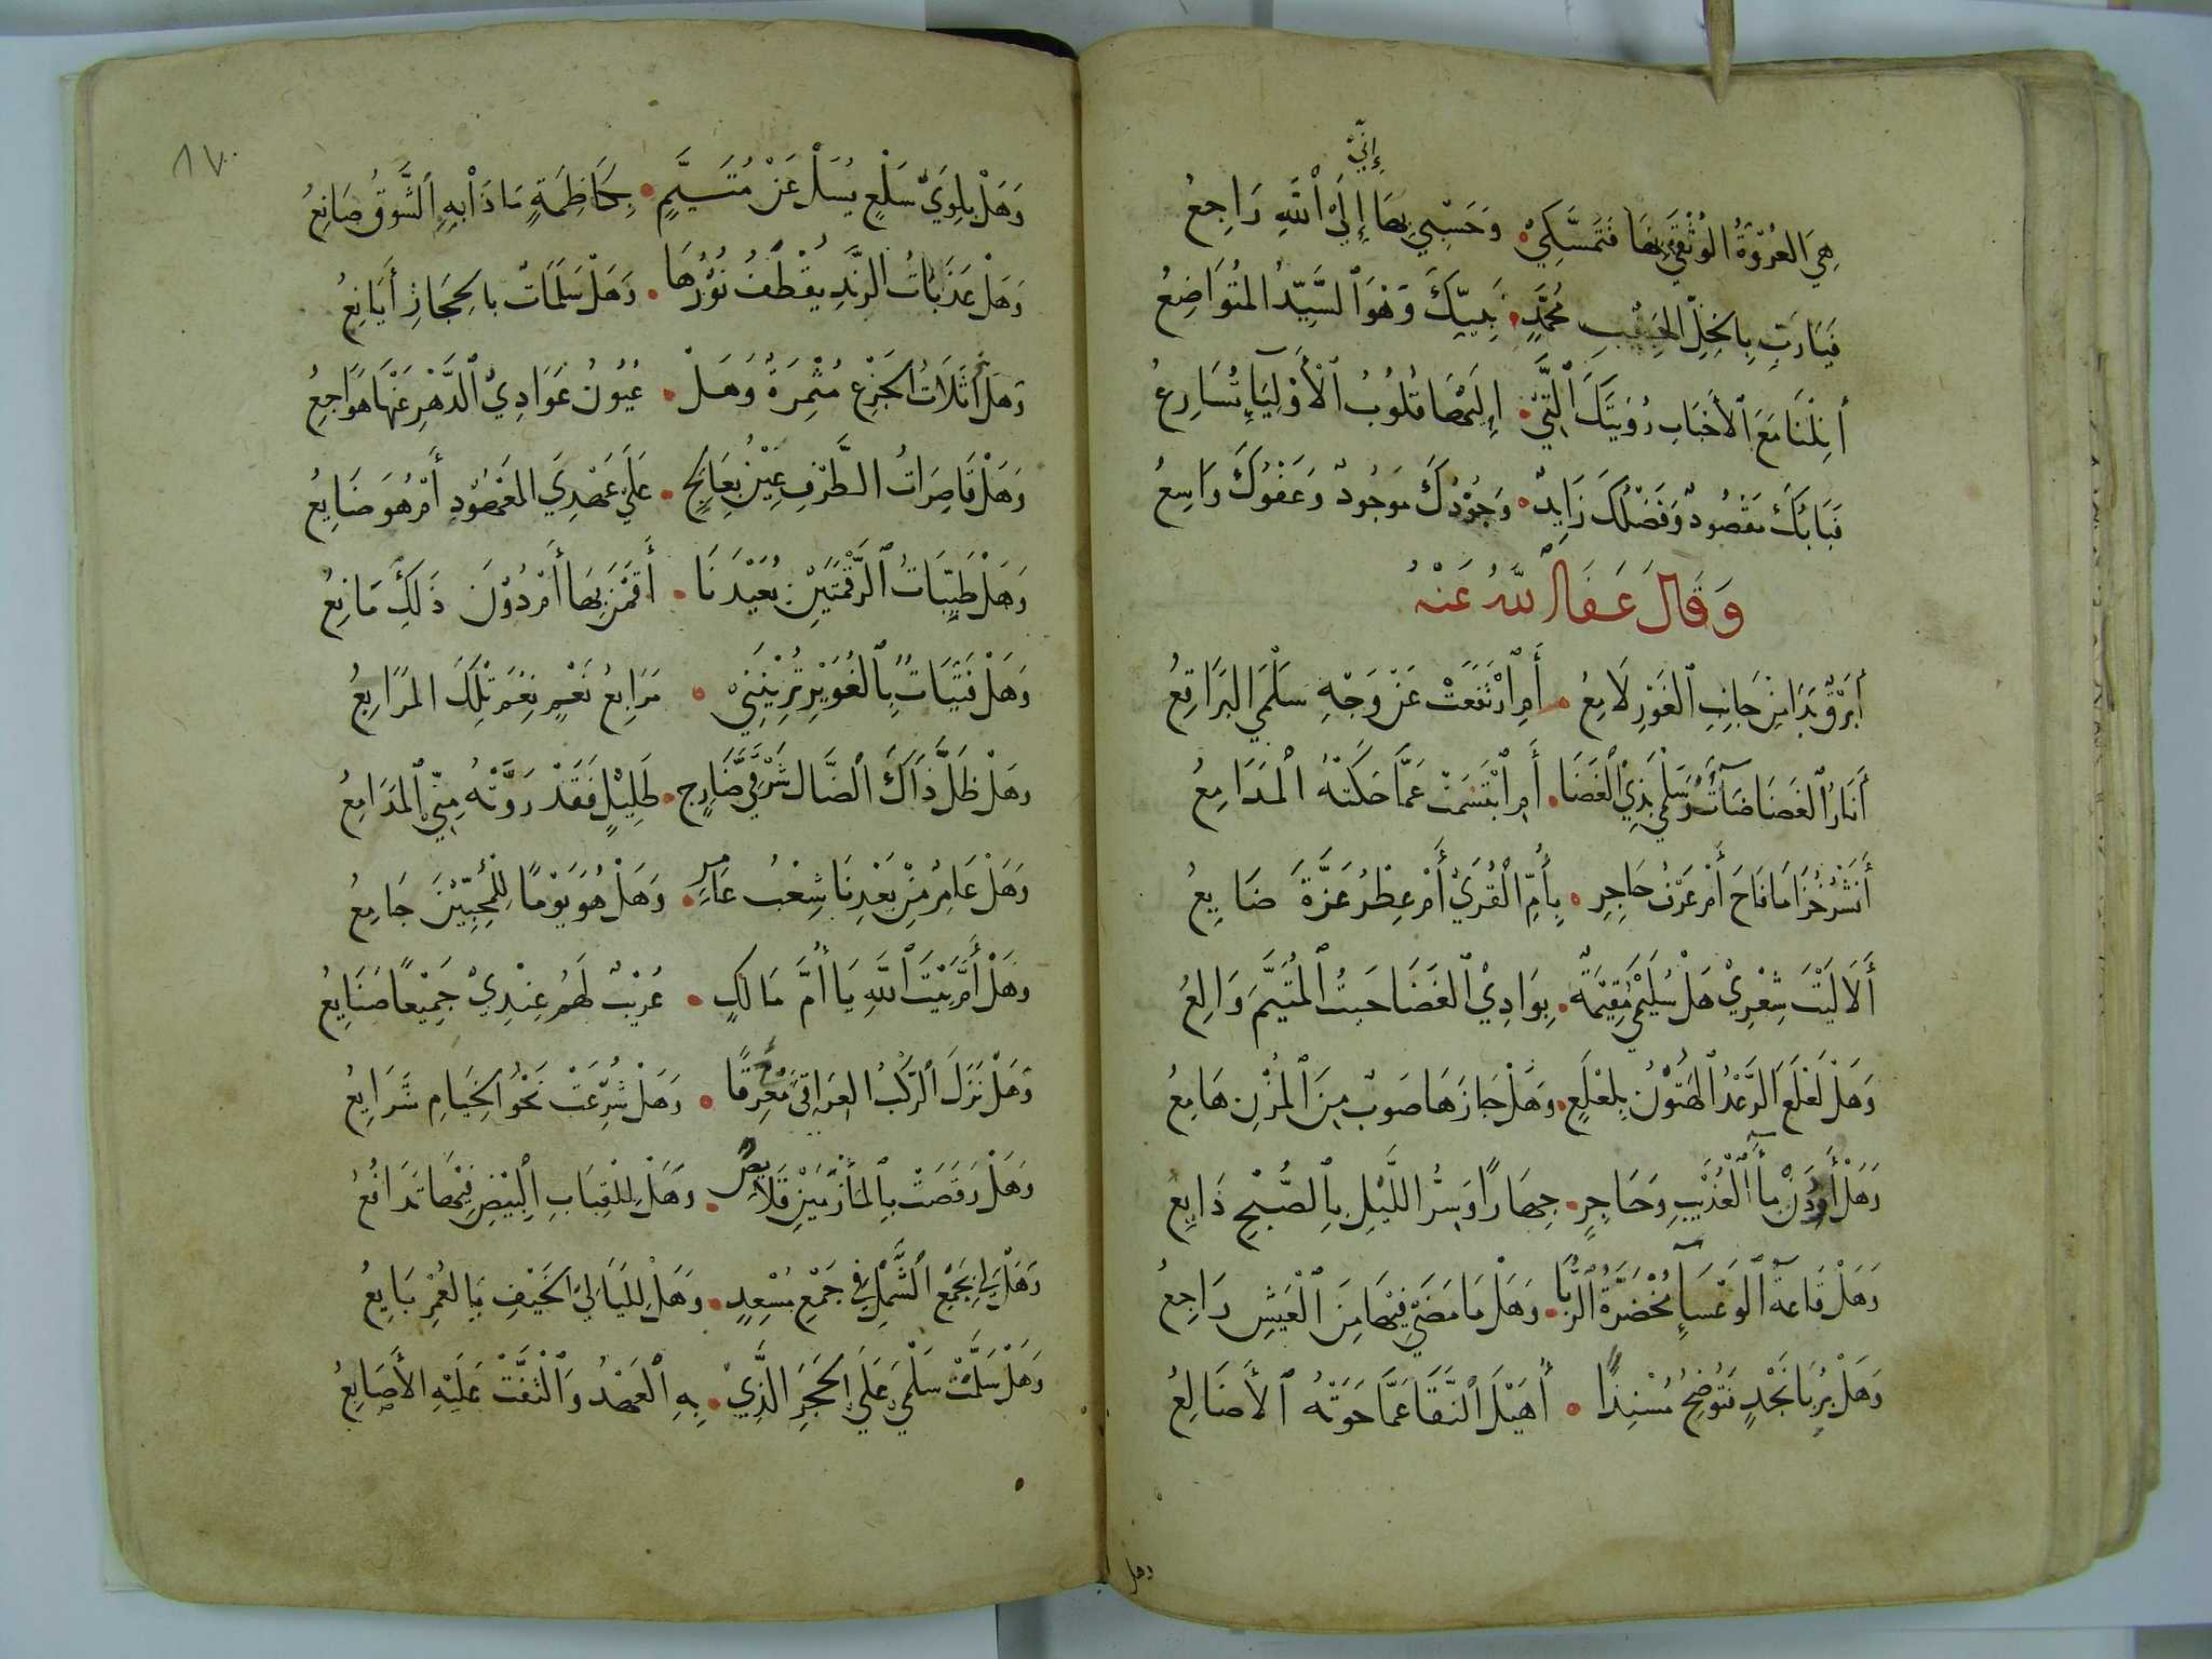 إِنِّي
هِيَ العُرْوَةُ الوُثْقَي بِهَا فَتَمَسَّكِيْ • وَحَسْبِي بِهَا إِلَيْ اللهِ رَاجِعُ
فَيَارَبِّ بِالخِلِّ الحَبِيْبِ مُحَمَّدٍ • نَبِيِّكَ وَهْوَ السَّيِّدُ المُتَوَاضِعُ
أَنِلْنَا مَعَ الأَحْبَابِ رُؤيَتَكَ الَّتِيْ • إِلَيْهَا قُلُوبُ الأَوْلِيَآءِ تُسَارِعُ
فَبَابُكَ مَقْصُودٌ وَفَضْلُكَ زَايِدٌ • وَجُوْدُكَ مَوجُودٌ وَعَفْوُكَ وَاسِعُ
وَقَالَ عَفَا اللهُ عَنْهُ
أَبَرْقٌ بَدَا مِنْ جَانِبِ الغَوْرِ لَامِعُ • أَمِ ارْتَفَعَتْ عَنْ وَجْهِ سَلْمَي البَرَاقِعُ
أَنَارُ الغَضَا ضَآءَتْ وَسَلْمَي بِذِيْ الغَضَا • أَمِ ابْتَسَمَتْ عَمَّا حَكَتْهُ المَدَامِعُ
أَنَشْرُ خُزَامَا فَاحَ أَمْ عَرْفُ حَاجِرٍ • بِأُمِّ القُرَيْ أَمْ عِطْرُ عَزَّةَ ضَايِعُ
أَلَا لَيْتَ شِعْرِيْ هَلْ سُلَيْمَي مُقِيْمَةٌ • بِوَادِيْ الغَضَا حَيْثُ المُتَيَّمُ وَالِعُ
وَهَلْ لَعْلَعَ الرَّعْدُ الهَتُوْنُ بِلَعْلَعٍ • وَهَلْ جَازَهَا صَوبٌ مِنَ المُزْنِ هَامِعُ
وَهَلْ أَرِدَنْ مَآءَ العُذَيْبِ وَحَاجِرٍ • جِهَارًا وَسِرُّ اللَّيْلِ بِالصُّبْحِ ذَايِعُ
وَهَلْ قَاعَةُ الوَعْسَآءِ مُخْضَرَّةُ الرُّبَا • وَهَلْ مَا مَضَيْ فِيْهَا مِنَ العَيْشِ رَاجِعُ
وَهَلْ بِرُبَا نَجْدٍ فَتُوْضِحُ مُسْنِدًا • أُهَيْلَ النَّقَا عَمَّا حَوَتْهُ الأَضَالِعُ
وهل
١٧٠
وَهَلْ بِلِوَيْ سَلْعٍ يُسَلْ عَنْ مُتَيَّمٍ • بِكَاظِمَةٍ مَاذَا بِهِ الشَّوقُ صَانِعُ
وَهَلْ عَذَبَاتُ الرَّنْدِ يُقْطَفُ نَوْرُهَا • وَهَلْ سَلَمَاتٌ بِالحِجَازِ أَيَانِعُ
وَهَلْ أَثَلَاتُ الجَزْعِ مُثْمِرَةٌ وَهَلْ • عُيُونُ عَوَادِيْ الدَّهْرِ عَنْهَا هَوَاجِعُ
وَهَلْ قَاصِرَاتُ الطَّرْفِ عِيْنٌ بِعَالِجٍ • عَلَيْ عَهْدِيَ المَعْهُوْدِ أَمْ هُوَ ضَايِعُ
وَهَلْ ظَبِيَّاتُ الرَّقْمَتَيْنِ بُعَيْدَنَا • أَقَمْنَ بِهَا أَمْ دُوْنَ ذَلِكَ مَانِعُ
وَهَلْ فَتَيَاتٌ بِالغُوَيْرِ تُرِيْنَنِيْ • مَرَابِعُ نُعْمٍ نِعْمَ تِلْكَ المَرَابِعُ
وَهَلْ ظِلُّ ذَاكَ الضَّالِ شَرْقِيَّ ضَارِجٍ • ظَلِيْلٍ فَقَدْ رَوَّتْهُ مِنِّي المَدَامِعُ
وَهَلْ عَامِرٌ مِنْ بَعْدِنَا شِعْبُ عَامِرٍ • وَهَلْ هُوَ يَوْمًا لِلْمُحِبِّيْنَ جَامِعُ
وَهَلْ أَمَّ بَيْتَ اللهِ يَا أُمَّ مَالِكٍ • عُرَيْبٌ لَهُمْ عِنْدِيْ جَمِيْعًا صَنَايِعُ
وَهَلْ نَزَلَ الرَّكْبُ العِرَاقِيُّ مُعَرِّفًا • وَهَلْ شُرِّعَتْ نَحْوَ الخِيَامِ شَرَايِعُ
وَهَلْ رَقَصَتْ بِالمَأزَمَيْنِ قَلَايِصٌ • وَهَلْ لِلْقِبَابِ البِيْضِ فِيْهَا تَدَافُعُ
وَهَلْ لِي بِجَمْعِ الشَّمْلِ فِي جَمْعِ مُسْعِدٍ • وَهَلْ لِلَيَالِي الخَيْفِ بِالعُمْرِ بَايِعُ
وَهَلْ سَلَّمَتْ سَلْمَي عَلَي الحَجَرِ الَّذِيْ • بِهِ العَهْدُ وَالتَفَّتْ عَلَيْهِ الأَصَابِعُ